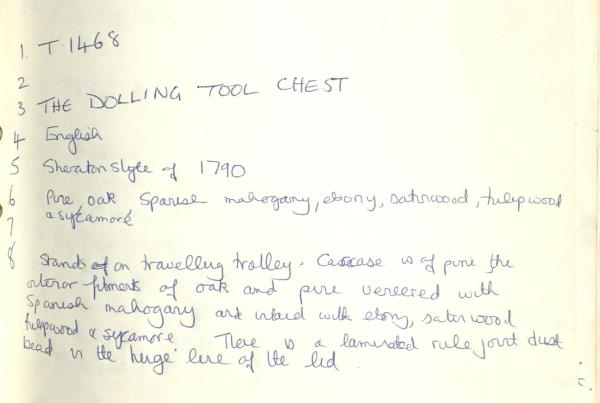 1. T.1468
2
3 THE DOLLING TOOL CHEST
4 English
5 Sheraton Style of 1790
6 Pine, oak Spanish mahogany, ebony, satinwood, tulipwood
7 & sycamore
8 Stands on travelling trolley. Carcase is of pine the
interior fitments of oak and pine veneered with
Spanish mahogany and inlaid with ebony, satinwood
tulipwood & sycamore There is a laminated rule joint dust
bead in the hinge line of the lid.